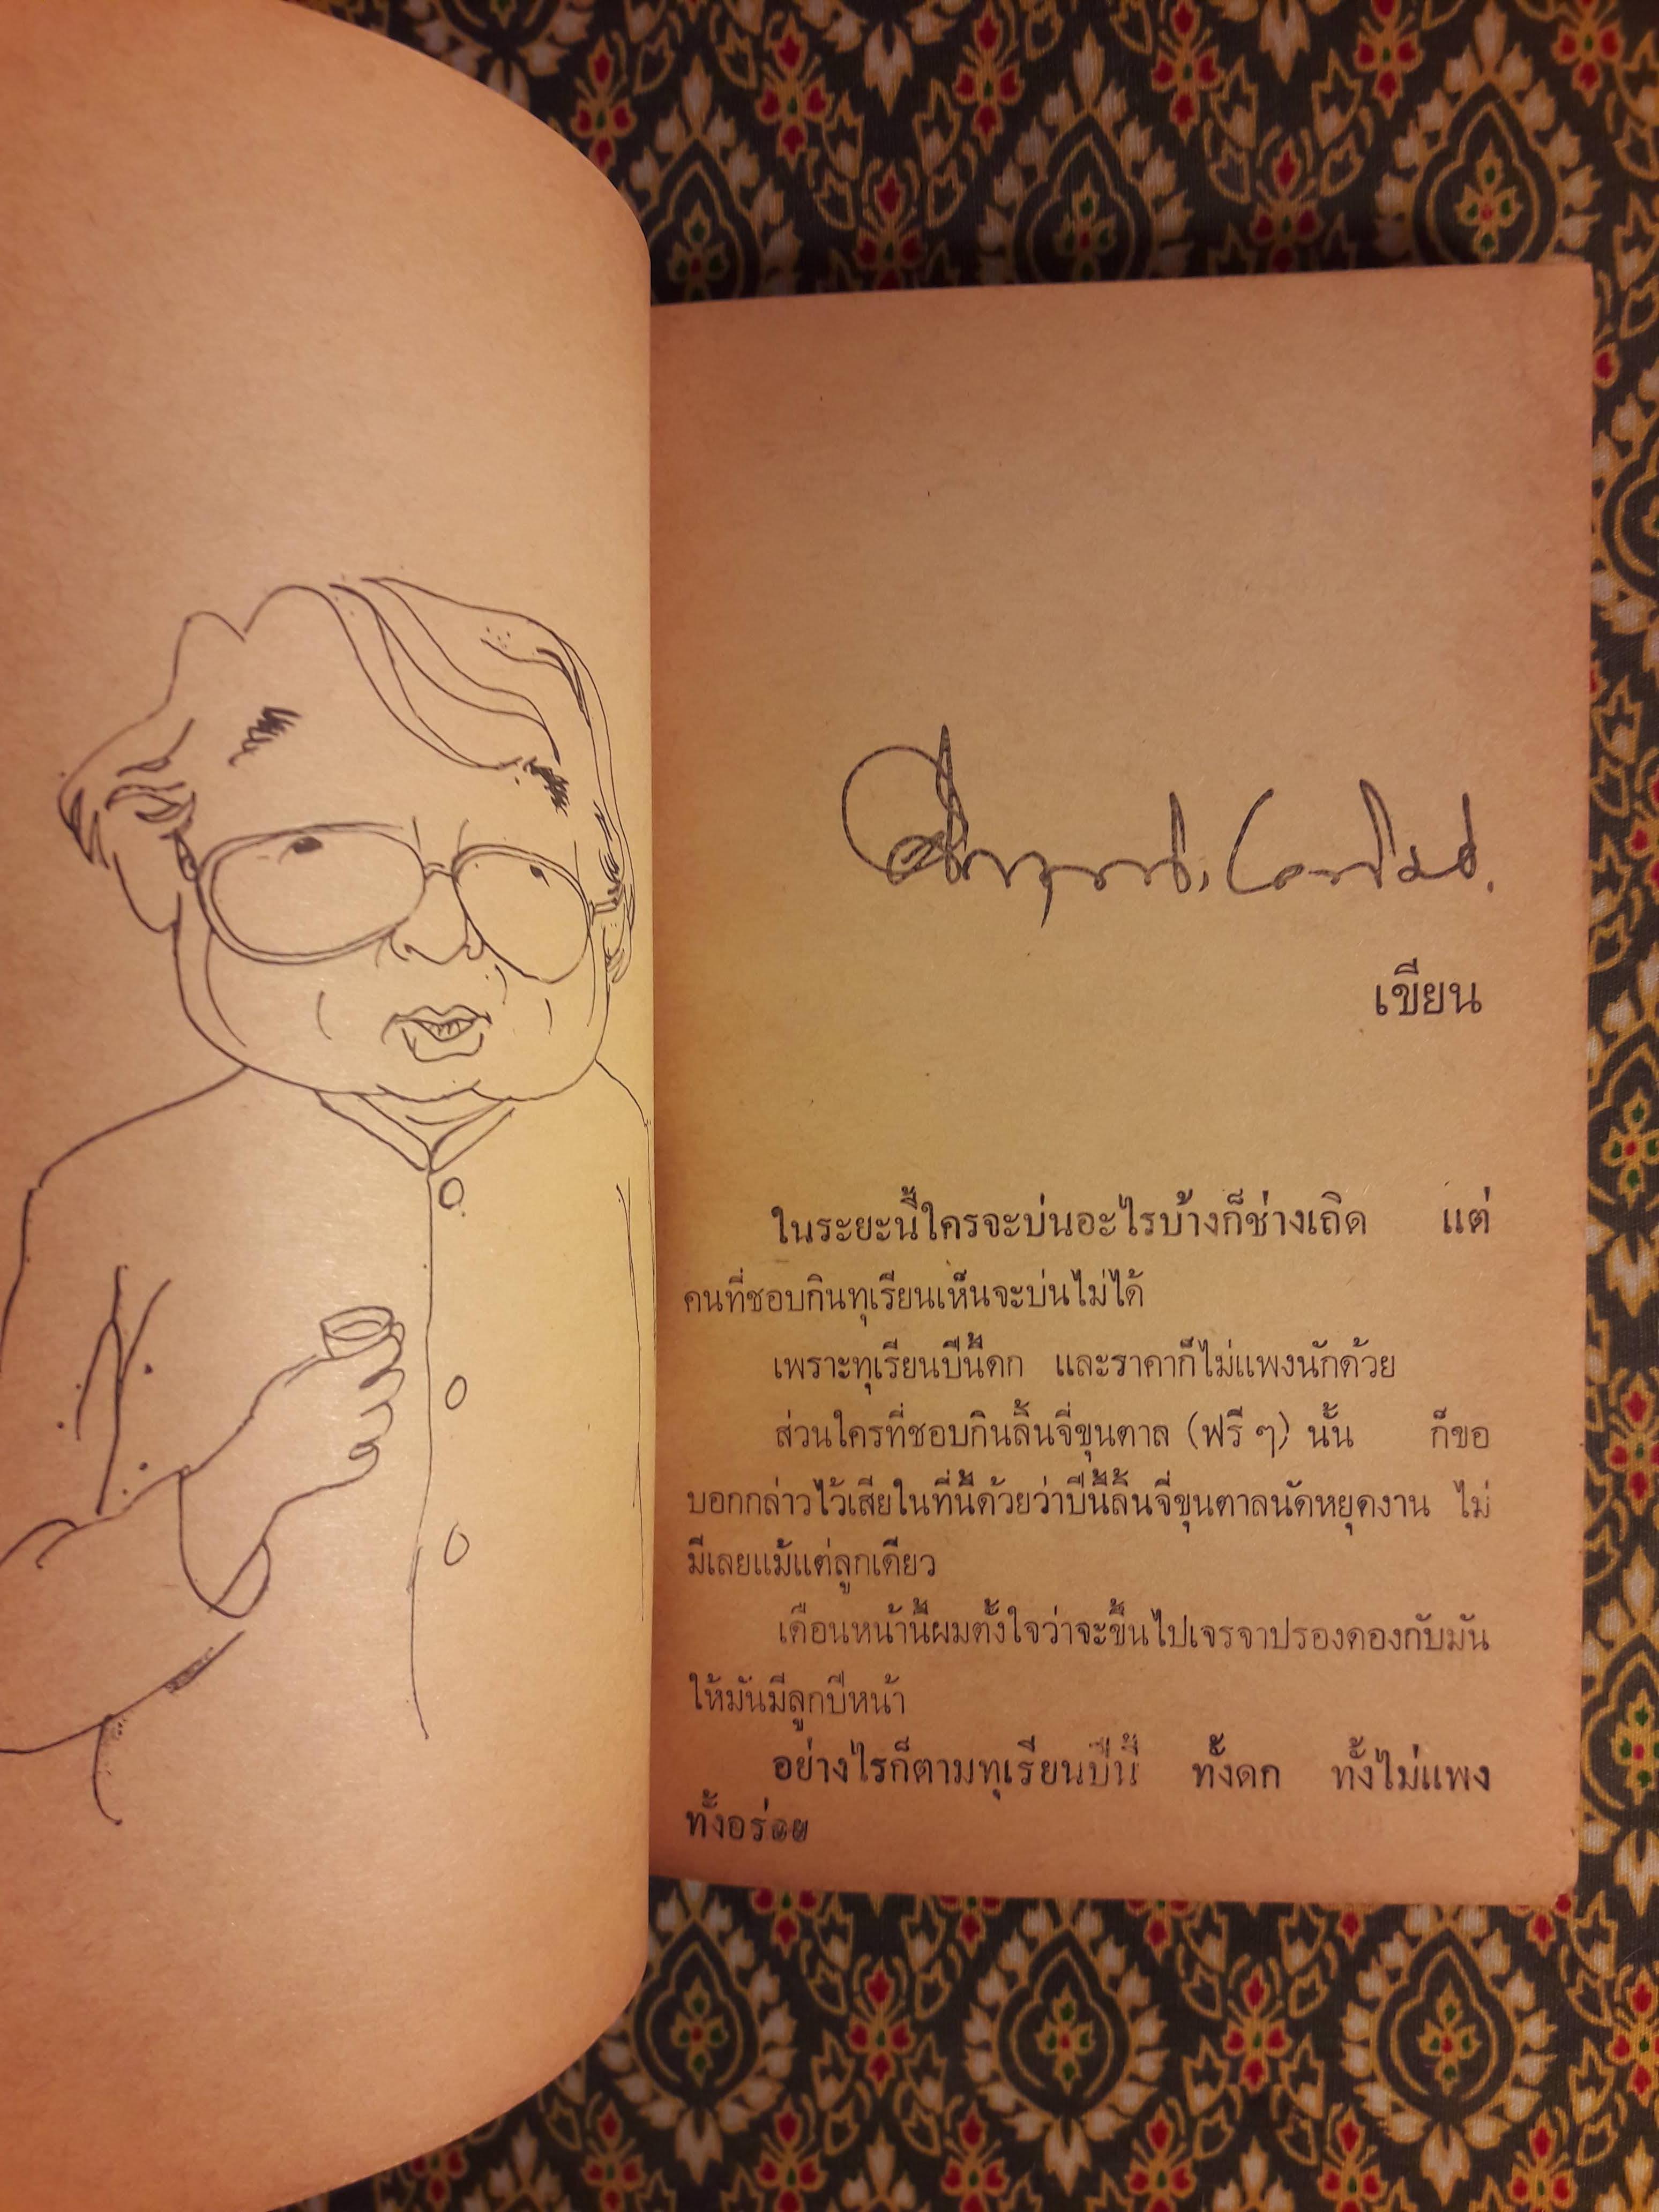 เขียน
ในระยะนี้ใครจะบ่นอะไรบ้างก็ช่างเถิด แต่
คนที่ชอบกินทุเรียนเห็นจะบ่นไม่ได้
เพราะทุเรียนปีนี้ดก และราคาก็ไม่แพงนักด้วย
ส่วนใครที่ชอบกินลิ้นจี่ขุนตาล (ฟรี ๆ) นั้น ก็ขอ
บอกกล่าวไว้เสียในที่นี้ด้วยว่าปีนี้ลิ้นจี่ขุนตาลนัดหยุดงาน ไม่
มีเลยแม้แต่ลูกเดียว
เดือนหน้านี้ผมตั้งใจว่าจะขึ้นไปเจรจาปรองดองกับมัน
ให้มันมีลูกปีหน้า
อย่างไรก็ตามทุเรียนปีนี้ ทั้งดก ทั้งไม่แพง
ทั้งอร่อย